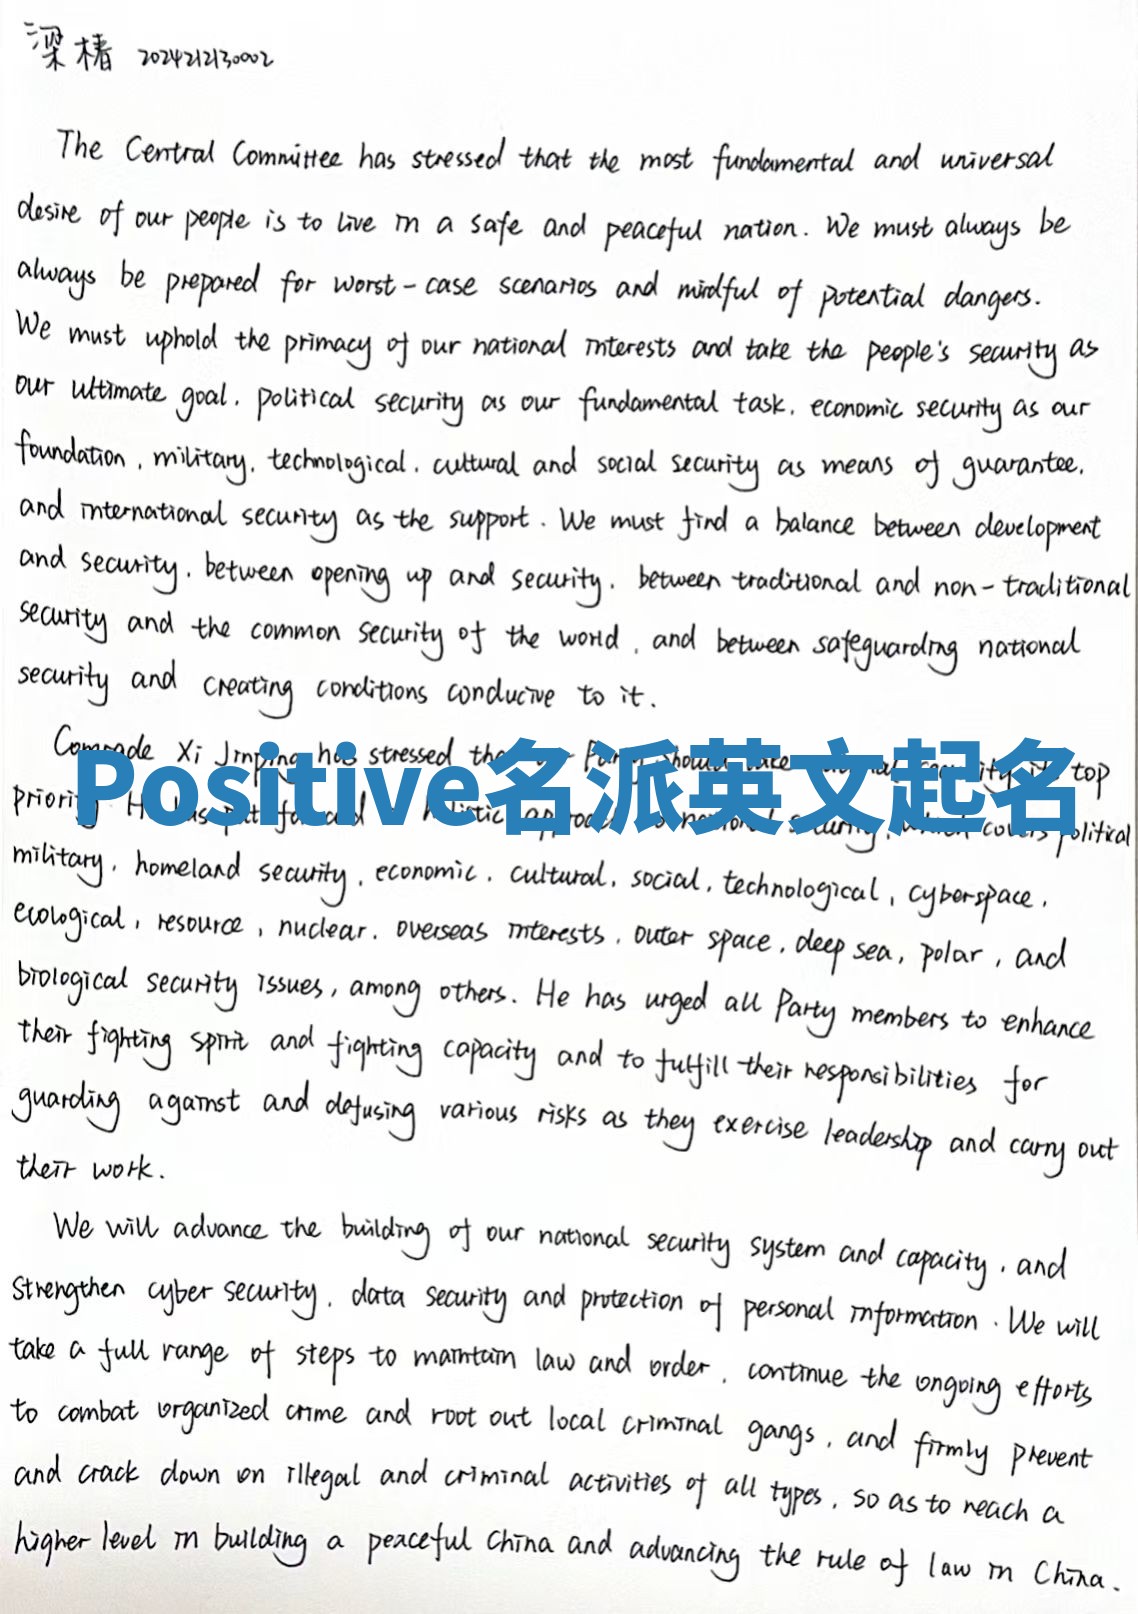 梁椿 2024212130002
The Central Committee has stressed that the most fundamental and universal
desire of our people is to live in a safe and peaceful nation. We must always be
always be prepared for worst-case scenarios and mindful of potential dangers.
We must uphold the primacy of our national interests and take the people's security as
our ultimate goal, political security as our fundamental task, economic security as our
foundation, military, technological, cultural and social security as means of guarantee,
and international security as the support. We must find a balance between development
and security, between opening up and security, between traditional and non-traditional
security and the common security of the world, and between safeguarding national
security and creating conditions conducive to it.
Comrade Xi Jinping has stressed top
Positive名派英文起名
priority political
military, homeland security, economic, cultural, social, technological, cyberspace,
ecological, resource, nuclear, overseas interests, outer space, deep sea, polar, and
biological security issues, among others. He has urged all Party members to enhance
their fighting spirit and fighting capacity and to fulfill their responsibilities for
guarding against and defusing various risks as they exercise leadership and carry out
their work.
We will advance the building of our national security system and capacity, and
strengthen cyber security, data security and protection of personal information. We will
take a full range of steps to maintain law and order, continue the ongoing efforts
to combat organized crime and root out local criminal gangs, and firmly prevent
and crack down on illegal and criminal activities of all types, so as to reach a
higher level in building a peaceful China and advancing the rule of law in China.